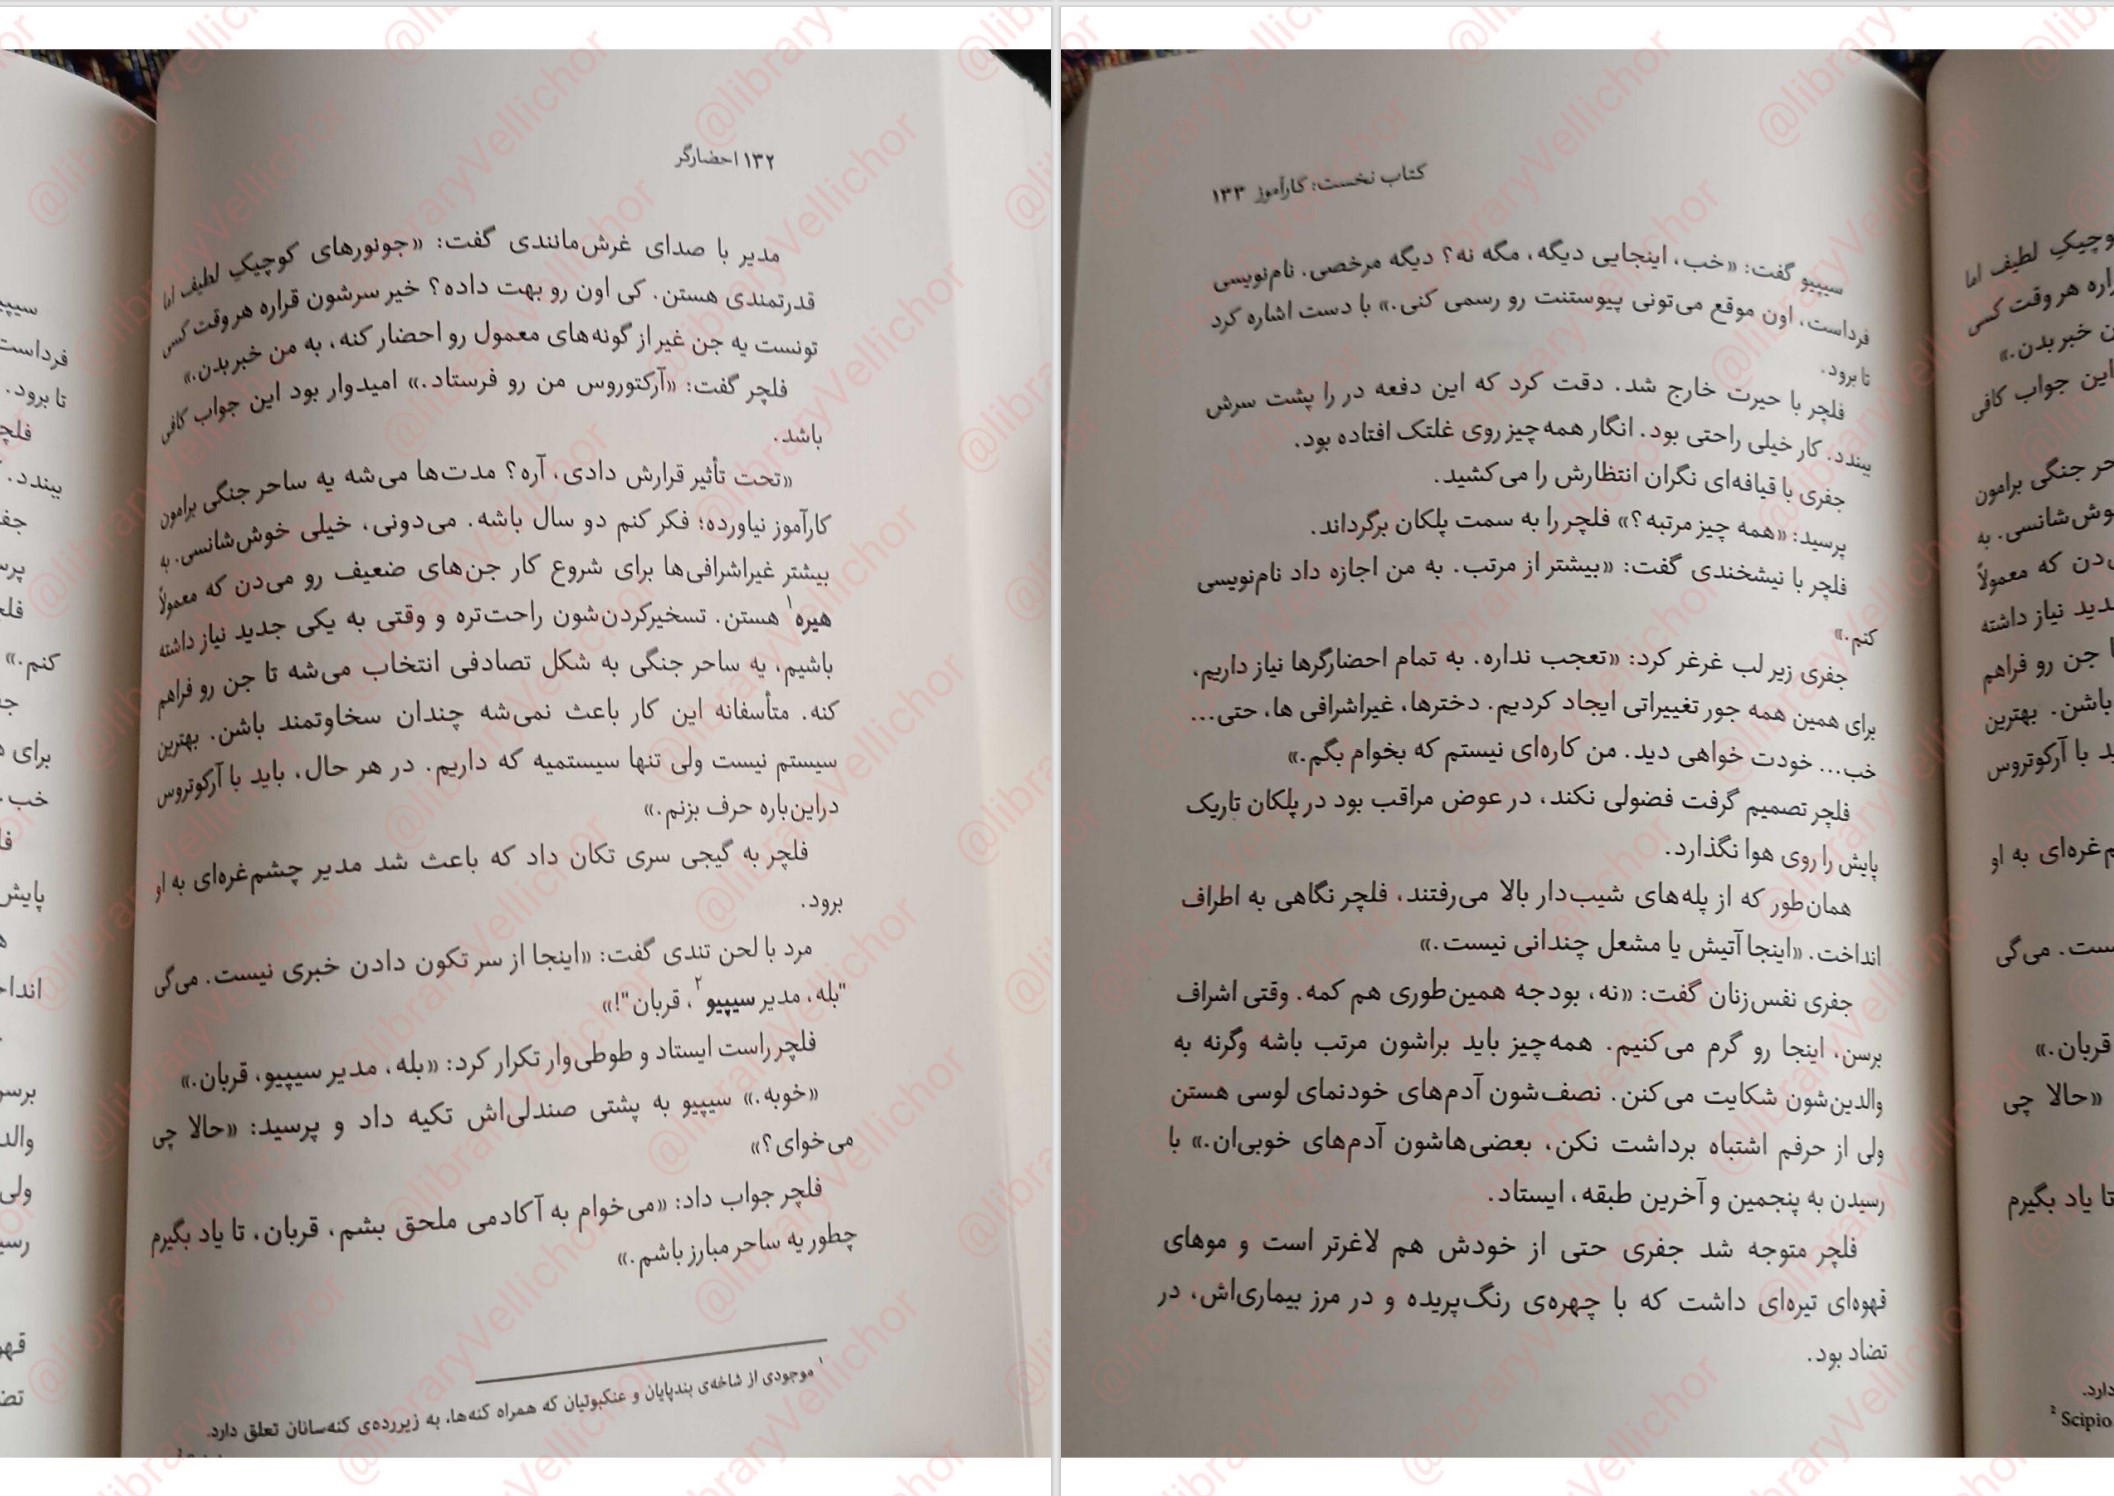 ۱۳۲ احضارگر
مدیر با صدای غرش‌مانندی گفت: «جونورهای کوچیکِ لطیف اما
قدرتمندی هستن. کی اون رو بهت داده؟ خیر سرشون قراره هر وقت کسی
تونست یه جن غیر از گونه‌های معمول رو احضار کنه، به من خبر بدن.»
فلچر گفت: «آرکتوروس من رو فرستاد.» امیدوار بود این جواب کافی
باشد.
«تحت تأثیر قرارش دادی، آره؟ مدت‌ها می‌شه یه ساحر جنگی برامون
کارآموز نیاورده؛ فکر کنم دو سال باشه. می‌دونی، خیلی خوش‌شانسی. به
بیشتر غیراشرافی‌ها برای شروع کار جن‌های ضعیف رو می‌دن که معمولاً
هیره۱ هستن. تسخیرکردن‌شون راحت‌تره و وقتی به یکی جدید نیاز داشته
باشیم، یه ساحر جنگی به شکل تصادفی انتخاب می‌شه تا جن رو فراهم
کنه. متأسفانه این کار باعث نمی‌شه چندان سخاوتمند باشن. بهترین
سیستم نیست ولی تنها سیستمیه که داریم. در هر حال، باید با آرکوتروس
دراین‌باره حرف بزنم.»
فلچر به گیجی سری تکان داد که باعث شد مدیر چشم‌غره‌ای به او
برود.
مرد با لحن تندی گفت: «اینجا از سر تکون دادن خبری نیست. می‌گی
"بله، مدیر سیپیو۲، قربان"!»
فلچر راست ایستاد و طوطی‌وار تکرار کرد: «بله، مدیر سیپیو، قربان.»
«خوبه.» سیپیو به پشتی صندلی‌اش تکیه داد و پرسید: «حالا چی
می‌خوای؟»
فلچر جواب داد: «می‌خوام به آکادمی ملحق بشم، قربان، تا یاد بگیرم
چطور یه ساحر مبارز باشم.»
۱ موجودی از شاخه‌ی بندپایان و عنکبوتیان که همراه کنه‌ها، به زیررده‌ی کنه‌سانان تعلق دارد.
کتاب نخست: کارآموز ۱۳۳
سیپیو گفت: «خب، اینجایی دیگه، مگه نه؟ دیگه مرخصی. نام‌نویسی
فرداست، اون موقع می‌تونی پیوستنت رو رسمی کنی.» با دست اشاره کرد
تا برود.
فلچر با حیرت خارج شد. دقت کرد که این دفعه در را پشت سرش
ببندد. کار خیلی راحتی بود. انگار همه چیز روی غلتک افتاده بود.
جفری با قیافه‌ای نگران انتظارش را می‌کشید.
پرسید: «همه چیز مرتبه؟» فلچر را به سمت پلکان برگرداند.
فلچر با نیشخندی گفت: «بیشتر از مرتب. به من اجازه داد نام‌نویسی
کنم.»
جفری زیر لب غرغر کرد: «تعجب نداره. به تمام احضارگرها نیاز داریم،
برای همین همه جور تغییراتی ایجاد کردیم. دخترها، غیراشرافی ها، حتی...
خب... خودت خواهی دید. من کاره‌ای نیستم که بخوام بگم.»
فلچر تصمیم گرفت فضولی نکند، در عوض مراقب بود در پلکان تاریک
پایش را روی هوا نگذارد.
همان‌طور که از پله‌های شیب‌دار بالا می‌رفتند، فلچر نگاهی به اطراف
انداخت. «اینجا آتیش یا مشعل چندانی نیست.»
جفری نفس‌زنان گفت: «نه، بودجه همین‌طوری هم کمه. وقتی اشراف
برسن، اینجا رو گرم می‌کنیم. همه‌چیز باید براشون مرتب باشه وگرنه به
والدین‌شون شکایت می‌کنن. نصف‌شون آدم‌های خودنمای لوسی هستن
ولی از حرفم اشتباه برداشت نکن، بعضی‌هاشون آدم‌های خوبی‌ان.» با
رسیدن به پنجمین و آخرین طبقه، ایستاد.
فلچر متوجه شد جفری حتی از خودش هم لاغرتر است و موهای
قهوه‌ای تیره‌ای داشت که با چهره‌ی رنگ‌پریده و در مرز بیماری‌اش، در
تضاد بود.
2 Scipio
@libraryVellichor